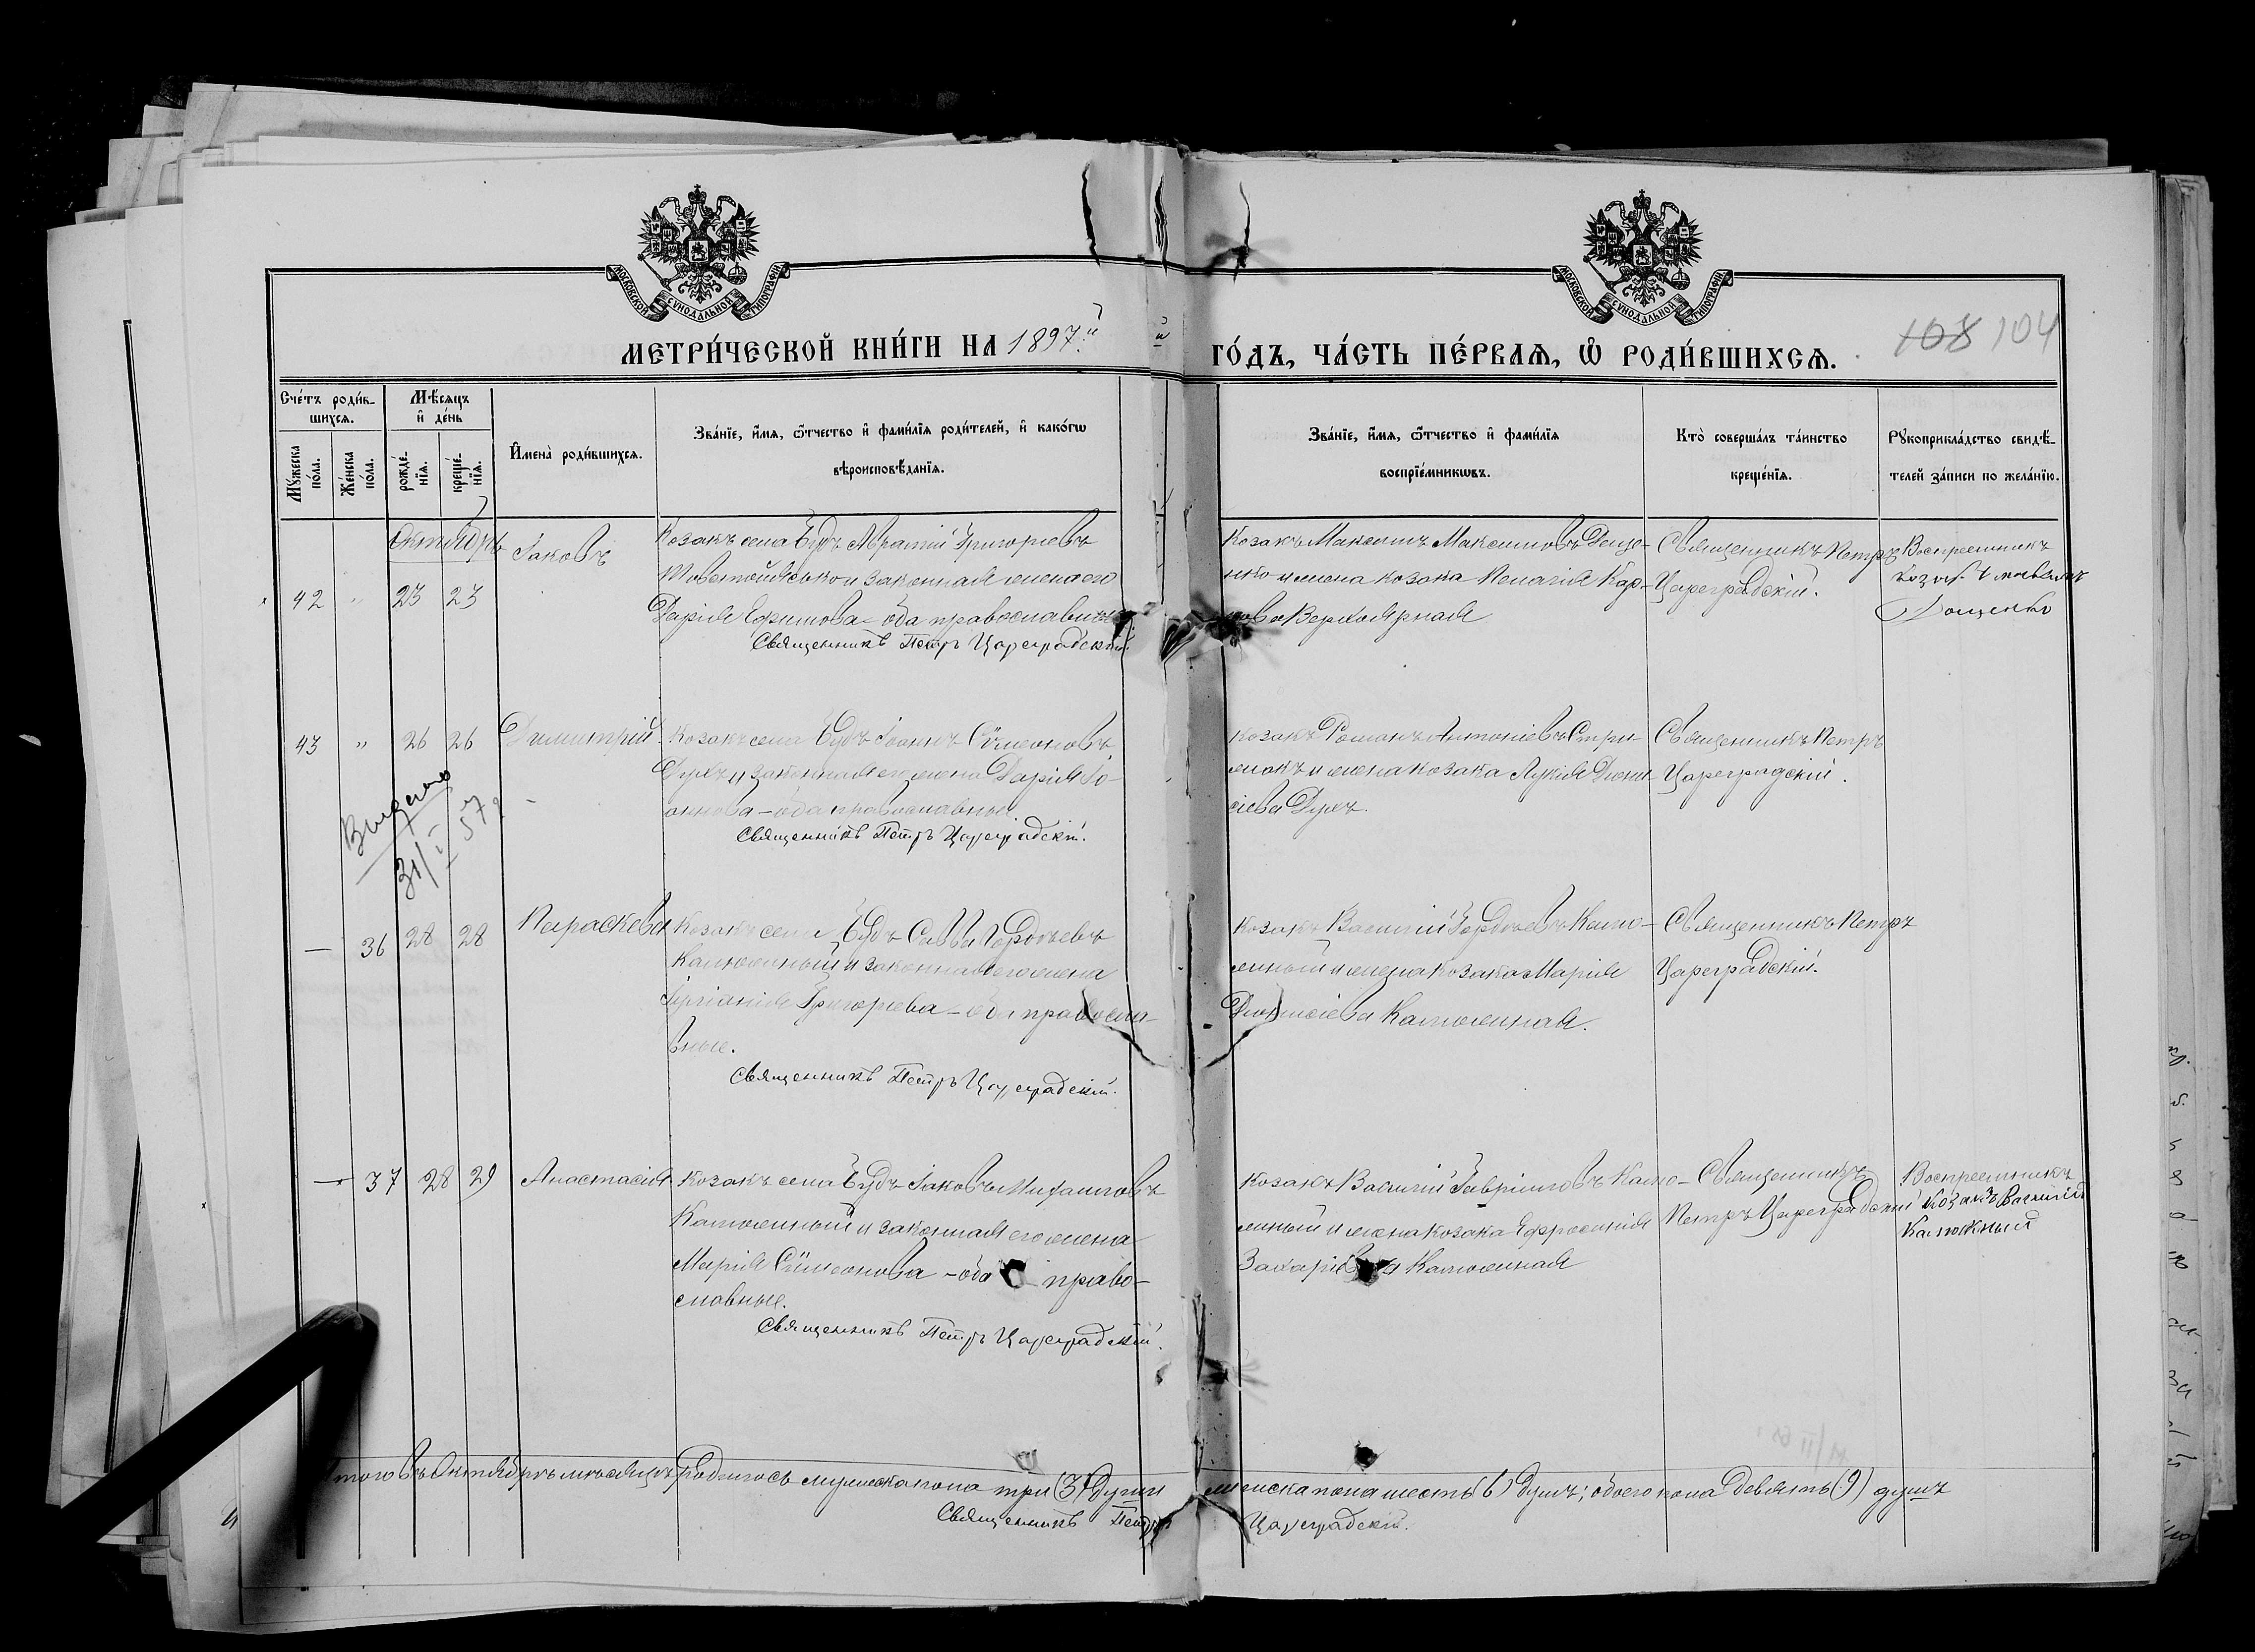 МОСКОВСКОЙ СѴНОДАЛЬНОЙ ТИПОГРАФІИ
МОСКОВСКОЙ СѴНОДАЛЬНОЙ ТИПОГРАФІИ
МЕТРИ́ЧЕСКОЙ КНИ́ГИ НА 1897й
ГО́ДЪ, ЧА́СТЬ ПЕ́РВАЯ, Ѿ РОДИ́ВШИХСЯ.
108 104
Сче́тъ роди́в-
шихся.
Мѣ́сяцъ
и де́нь
Мꙋ́жеска по́ла.
Же́нска по́ла.
рожде́-нїя.
креще́-нїя.
И҆мена̀ роди́вшихся.
Зва́нїе, и҆́мя, ѻ҆́тчество и҆ фами́лїя роди́телей, и҆ како́гѡ
вѣроисповѣ́данїя.
Зва́нїе, и҆́мя, ѻ҆́тчество и҆ фами́лїя
воспрїе́мникѡвъ.
Кто̀ соверша́лъ та́инство
креще́нїя.
Рꙋкоприкла́дство свидѣ́-
телей за́писи по жела́нїю.
Октябрь
42 " 23 23
Іаковъ
Козакъ села Будъ Григоріевъ
и законная жена его
Дарія Ефимова - оба православные
Священникъ Петръ Цареградскій.
Козакъ Максимъ Максимовъ Доще-
нко и жена козака Пелагія Кар-
пова
Священникъ Петръ
Цареградскій.
Воспреемникъ
козак
Дощенко
43 " 26 26
Димитрій
Козакъ села Будъ Іоаннъ Сѵмеоновъ
Духъ и законная его жена Дарія Іо-
аннова - оба православные.
Священникъ Петръ Цареградскій.
козакъ Романъ Антоніевъ Стри-
жакъ и жена козака Лукія Діони-
сіева Духъ.
Священникъ Петръ
Цареградскій.
Видано
31/I 57 г
— 36 28 28
Параскева
Козакъ села Будъ Савва Гордѣевъ
Калюжный и законная его жена
Іуліанія Григорьева - оба правосла-
вные.
Священникъ Петръ Цареградскій.
козакъ Василій Гордѣевъ Калю-
жный и жена козака Марія
Діонисіева Калюжная.
Священникъ Петръ
Цареградскій.
— 37 28 29
Анастасія
козакъ села Будъ Іаковъ Михаиловъ
Калюжный и законная его жена
Марія Сѵмеонова - оба право-
славные.
Священникъ Петръ Цареградскій.
козакъ Василій Гавріиловъ Калю-
жный и жена козака Ефросинія
Захаріева Калюжная
Священникъ
Петръ Цареградскій
Воспреемникъ
Козакъ Василій
Калюжный
Итого въ Октябрѣ мѣсяцѣ родилось мужеска пола три (3) души
женска пола шесть (6) душъ; обоего пола девять (9) душъ
Священникъ Петръ
Цареградскій.